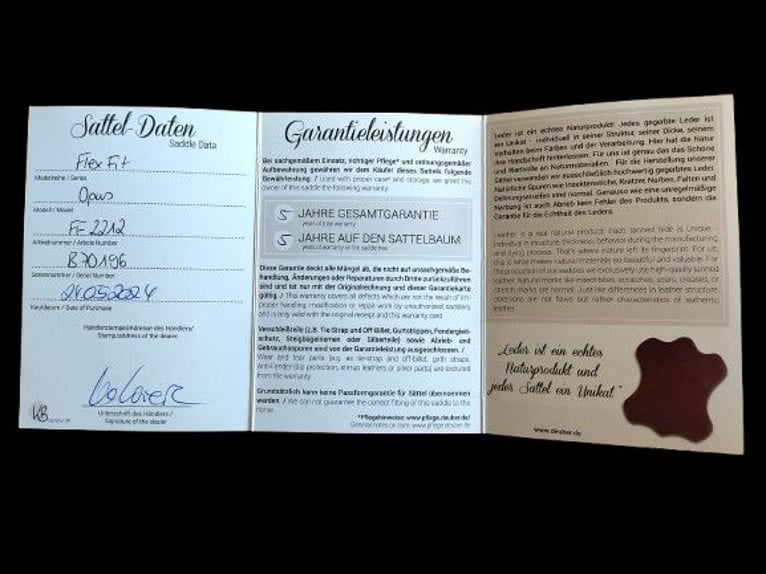 Sattel-Daten
Saddle Data
Flex Fit
Modellreihe / Series
Opus
Modell / Model
FF 2212
Artikelnummer / Article Number
B 70196
Seriennummer / Serial Number
24.05.2024
Kaufdatum / Date of Purchase
Händlerstempel/Adresse des Händlers/
Stamp/address of the dealer
Unterschrift des Händlers/
Signature of the dealer
Garantieleistungen
Warranty
Bei sachgemäßem Einsatz, richtiger Pflege* und ordnungsgemäßer
Aufbewahrung gewähren wir dem Käufer dieses Sattels folgende
Gewährleistung: / Used with proper care* and storage, we grant the
owner of this saddle the following warranty.
5 JAHRE GESAMTGARANTIE
years of total warranty
5 JAHRE AUF DEN SATTELBAUM
years of warranty on the saddle tree
Diese Garantie deckt alle Mängel ab, die nicht auf unsachgemäße Be-
handlung, Änderungen oder Reparaturen durch Dritte zurückzuführen
sind und ist nur mit der Originalrechnung und dieser Garantiekarte
gültig. / This warranty covers all defects which are not the result of im-
proper handling, modification or repair work by unauthorized saddlers
and is only valid with the original receipt and this warranty card.
Verschleißteile (z.B. Tie Strap und Off-Billet, Gurtstrippen, Fendergleit-
schutz, Steigbügelriemen oder Silberteile) sowie Abrieb- und
Gebrauchsspuren sind von der Garantieleistung ausgeschlossen. /
Wear and tear parts (e.g. as tie-strap and off-billet, girth straps,
Anti-Fender-Slip protection, stirrup leathers or silver parts) are excluded
from the warranty.
Grundsätzlich kann keine Passformgarantie für Sättel übernommen
werden. / We can not guarantee the correct fitting of this saddle to the
horse.
*Pflegehinweise: www.pflege.deuber.de/
General notes on care: www.pflege.deuber.de
Leder ist ein echtes Naturprodukt. Jedes gegerbte Leder ist
ein Unikat - individuell in seiner Struktur, seiner Dicke, seinem
Verhalten beim Färben und der Verarbeitung. Hier hat die Natur
ihre Handschrift hinterlassen. Für uns ist genau das das Schöne
und Wertvolle an Naturmaterialien. Für die Herstellung unserer
Sättel verwenden wir ausschließlich hochwertig gegerbtes Leder.
Natürliche Spuren wie Insektenstiche, Kratzer, Narben, Falten und
Dehnungsstreifen sind normal. Genauso wie eine unregelmäßige
Narbung ist auch Abrieb kein Fehler des Produkts, sondern die
Garantie für die Echtheit des Leders.
Leather is a real natural product. Each tanned hide is unique -
individual in structure, thickness, behavior during the manufacturing
and dying process. That's where nature left its fingerprint. For us,
this is what makes natural materials so beautiful and valuable. For
the production of our saddles we exclusively use high-quality tanned
leather. Natural marks like insect bites, scratches, scars, creases, or
stretch marks are normal. Just like differences in leather structure,
abrasions are not flaws but rather characteristics of authentic
leather.
„Leder ist ein echtes
Naturprodukt und
jeder Sattel ein Unikat“
www.deuber.de